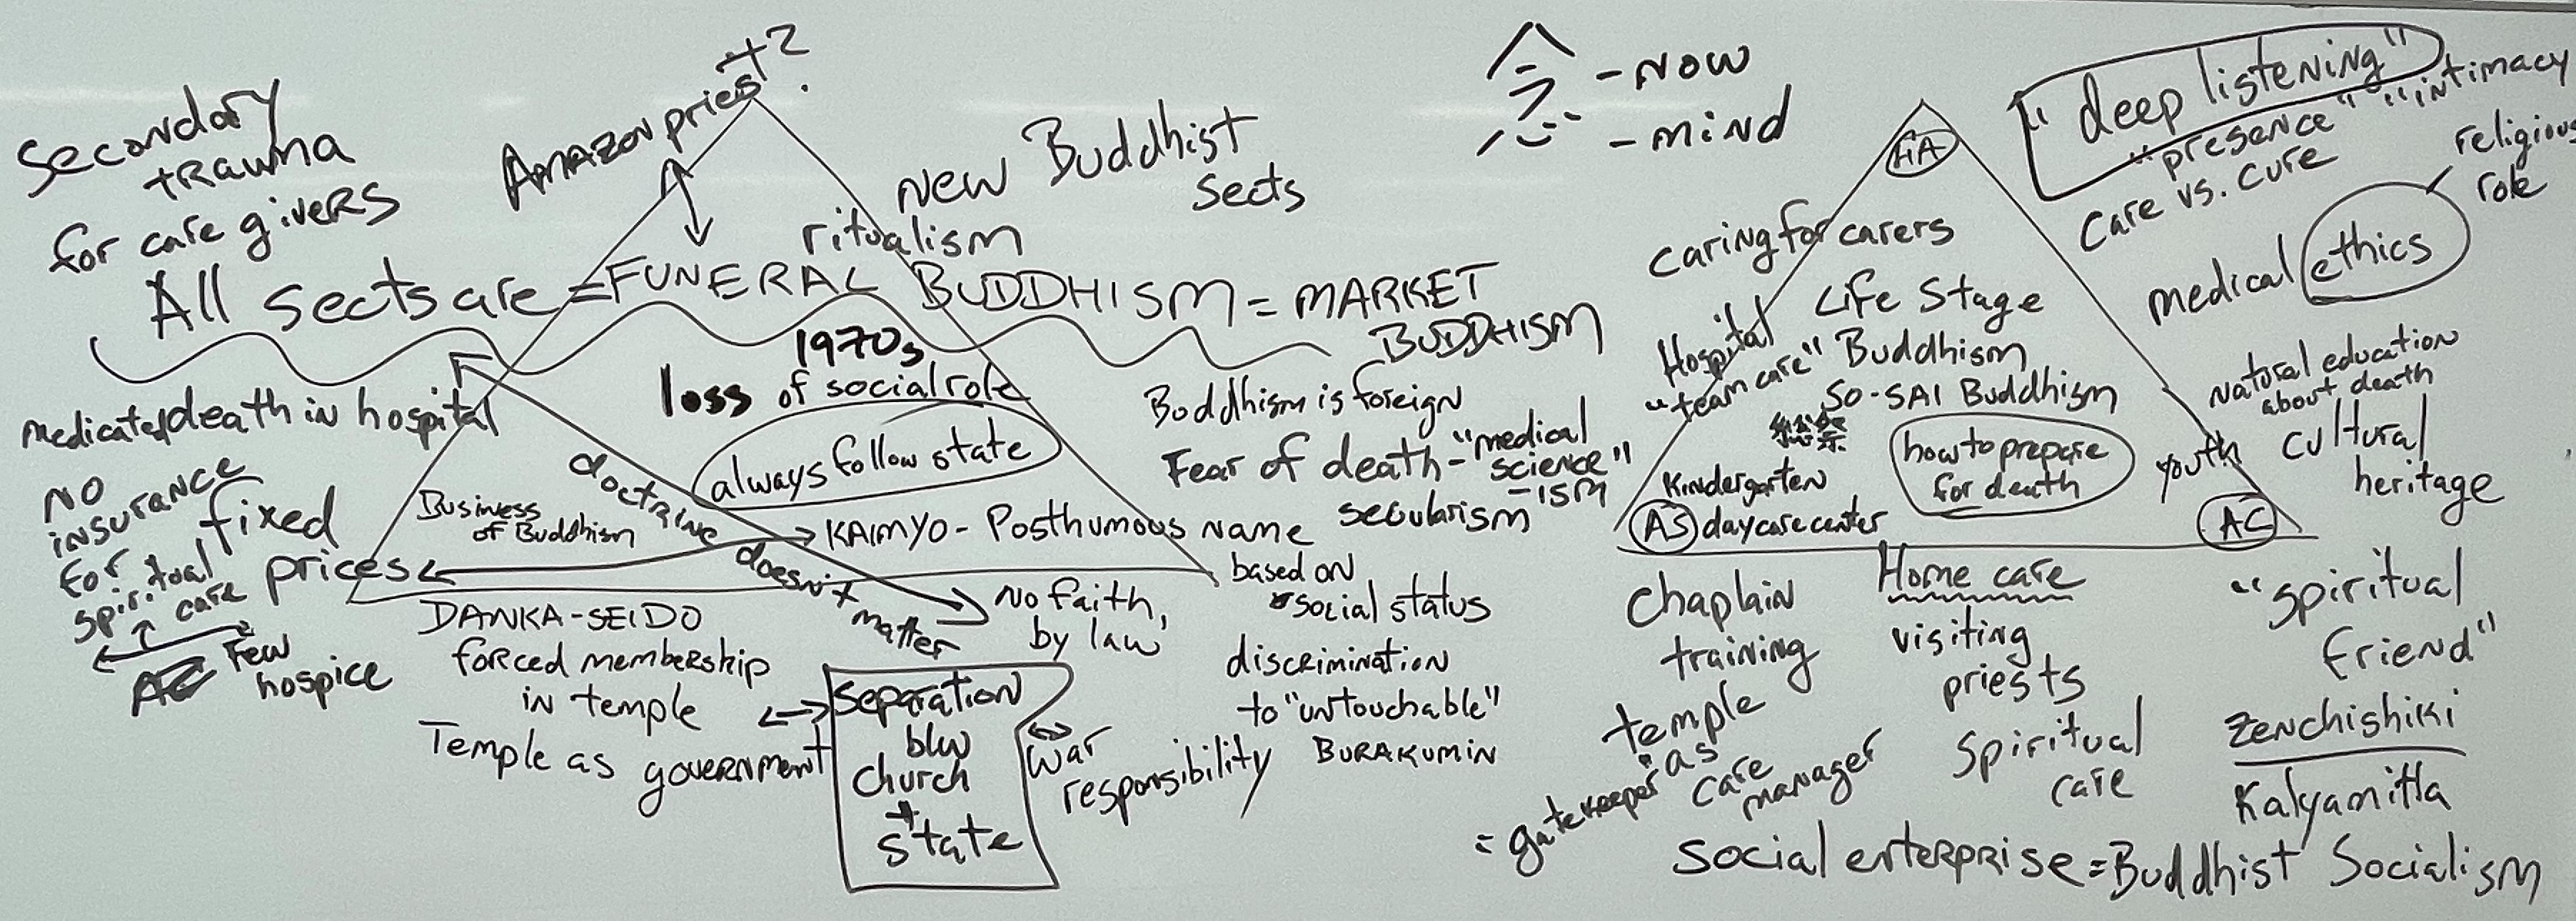 Secondary
trauma
for care givers
Amazon priest?
New Buddhist
Sects
ritualism
All sects are = FUNERAL BUDDHISM = MARKET
BUDDHISM
1970s
loss of social role
always follow state
medicated death in hospital
No
insurance
for
spiritual
care
fixed
prices
Few
hospice
Business
of Buddhism
doctrine doesn't matter
KAIMYO - Posthumous Name
based on
social status
discrimination
to "untouchable"
BURAKUMIN
Buddhism is foreign
Fear of death - "medical
science"
-ISM
secularism
DANKA-SEIDO
forced membership
in temple
Temple as government
No faith,
by law
Separation
btw
Church
+
State
war
responsibility
念
- now
- mind
"deep listening"
"presence" "intimacy
care vs. cure
religious
role
medical ethics
HA
caring for carers
Hospital
"team care"
Life Stage
Buddhism
SO-SAI Buddhism
総祭
how to prepare
for death
Kindergarten
AS daycare center
youth
AC
Natural education
about death
cultural
heritage
Chaplain
training
temple
as
care
manager
= gatekeeper
Home care
visiting
priests
Spiritual
care
"spiritual
friend"
Zenchishiki
Kalyamitta
Social enterprise = Buddhist Socialism